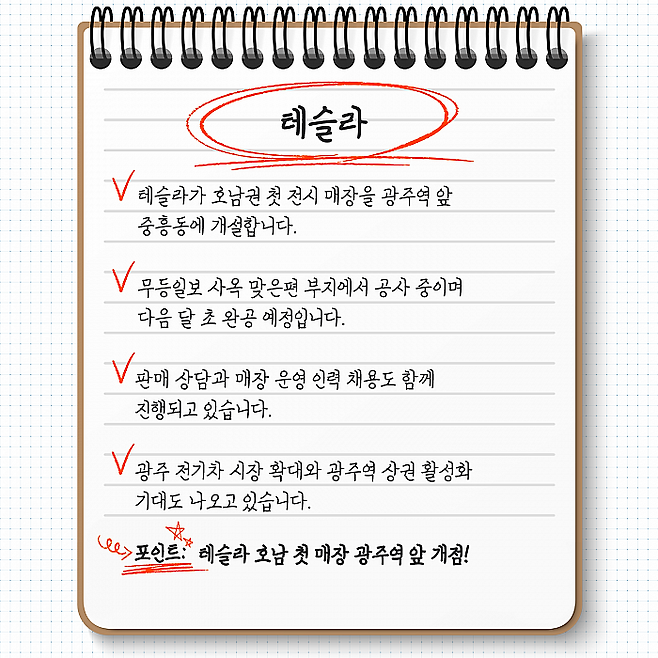 테슬라
테슬라가 호남권 첫 전시 매장을 광주역 앞
중흥동에 개설합니다.
무등일보 사옥 맞은편 부지에서 공사 중이며
다음 달 초 완공 예정입니다.
판매 상담과 매장 운영 인력 채용도 함께
진행되고 있습니다.
광주 전기차 시장 확대와 광주역 상권 활성화
기대도 나오고 있습니다.
포인트: 테슬라 호남 첫 매장 광주역 앞 개점!